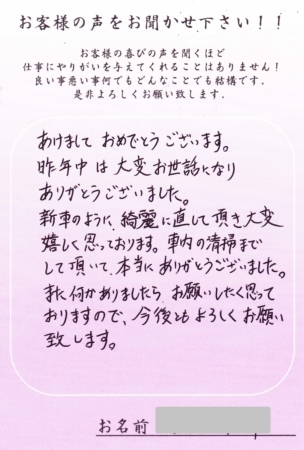 お客様の声をお聞かせ下さい！！
お客様の喜びの声を聞くほど
仕事にやりがいを与えてくれることはありません！
良い事悪い事何でもどんなことでも結構です．
是非よろしくお願い致します．
あけまして おめでとうございます。
昨年中は大変お世話になり
ありがとうございました。
新車のように、綺麗に直して頂き大変
嬉しく思っております。車内の清掃まで
して頂いて、本当にありがとうございました。
また何かありましたら、お願いしたく思って
おりますので、今後ともよろしくお願い
致します。
お名前